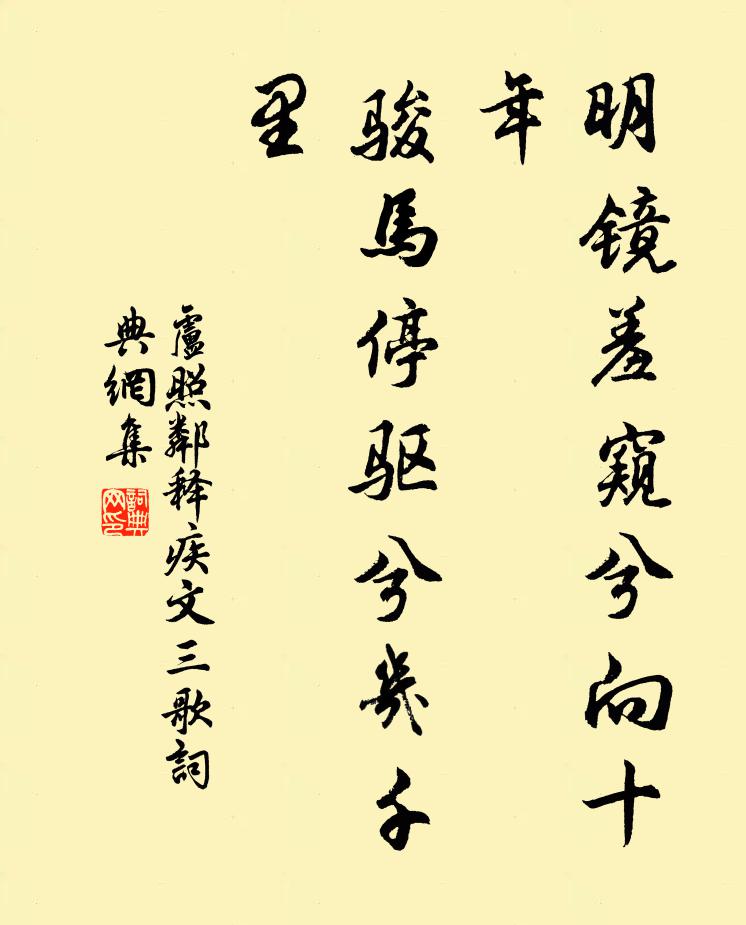 明镜羞窺兮向十
年
骏馬停驱兮幾千
里
盧照鄰释疾文三歌詞
典網集
詞典
网印